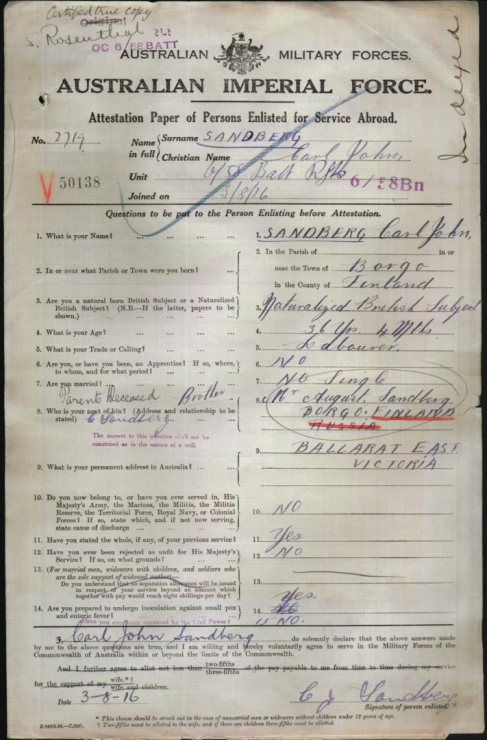 Certified true copy
Original
S. Rosenthal
OC 6/58 BATT
AUSTRALIAN MILITARY FORCES.
AUSTRALIAN IMPERIAL FORCE.
Attestation Paper of Persons Enlisted for Service Abroad.
No. 2719
Name in full
Surname SANDBERG
Christian Name Carl John,
50138
Unit 6/58 Batt 6/58Bn
Joined on 3/8/16
Questions to be put to the Person Enlisting before Attestation.
1. What is your Name? ... 1. SANDBERG Carl John,
2. In or near what Parish or Town were you born? ... 2. In the Parish of in or
near the Town of Borgo
in the County of Finland
3. Are you a natural born British Subject or a Naturalized
British Subject? (N.B.—If the latter, papers to be
shown.) 3. Naturalized British Subject
4. What is your Age? ... 4. 36 Yrs. 4 Mths
5. What is your Trade or Calling? ... 5. Labourer.
6. Are you, or have you been, an Apprentice? If so, where,
to whom, and for what period? ... 6. NO
7. Are you married? ... 7. NO Single
Parents Deceased Brother
8. Who is your next of kin? (Address and relationship to be
stated) C Sandberg
8. Mr August Sandberg
BORGO. FINLAND
RUSSIA
The answer to this question shall not be
construed as in the nature of a will.
9. What is your permanent address in Australia? ... 9. BALLARAT EAST.
VICTORIA
10. Do you now belong to, or have you ever served in, His
Majesty's Army, the Marines, the Militia, the Militia
Reserve, the Territorial Force, Royal Navy, or Colonial
Forces? If so, state which, and if not now serving,
state cause of discharge ... 10. NO
11. Have you stated the whole, if any, of your previous service? 11. Yes
12. Have you ever been rejected as unfit for His Majesty's
Service? If so, on what grounds? ... 12. NO
13. (For married men, widowers with children, and soldiers who
are the sole support of widowed mother—
Do you understand that no separation allowance will be issued
in respect of your service beyond an amount which
together with pay would reach eight shillings per day? 13.
14. Are you prepared to undergo inoculation against small pox
and enteric fever? 14. Yes.
NO.
I, Carl John Sandberg do solemnly declare that the above answers made
by me to the above questions are true, and I am willing and hereby voluntarily agree to serve in the Military Forces of the
Commonwealth of Australia within or beyond the limits of the Commonwealth.
And I further agree to allot not less than two-fifths three-fifths of the pay payable to me from time to time during my service
for the support of my wife.* † wife and children.
Date 3-8-16
C J Sandberg
Signature of person enlisted.
* This clause should be struck out in the case of unmarried men or widowers without children under 18 years of age.
† Two-fifths must be allotted to the wife, and if there are children three-fifths must be allotted.